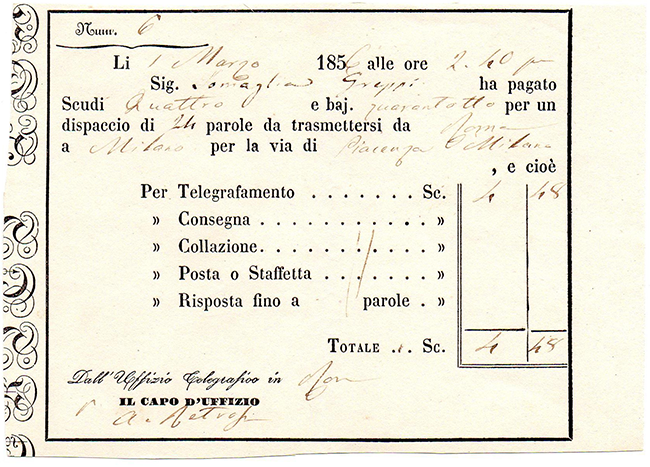 Num. 6
Li 1 Marzo 1856 alle ore 2.40 pm
Sig. Somaglia Greppi ha pagato
Scudi Quattro e baj. quarantotto per un
dispaccio di 24 parole da trasmettersi da Roma
a Milano per la via di Piacenza Milano
, e cioè
Per Telegrafamento . . . . . . . Sc. 4 48
» Consegna . . . . . . . . . . . »
» Collazione. . . . . . . . . . . »
» Posta o Staffetta . . . . . . . »
» Risposta fino a // parole . »
TOTALE . . Sc. 4 48
Dall' Uffizio Telegrafico in Rom
IL CAPO D'UFFIZIO